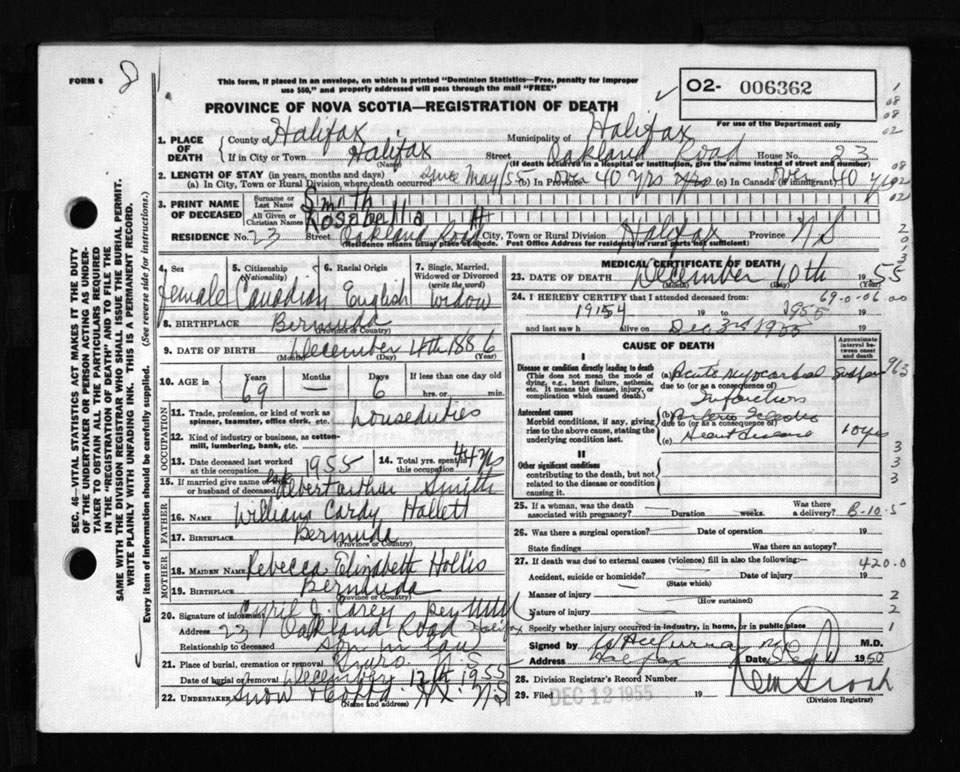 FORM 6
8
This form, if placed in an envelope, on which is printed "Dominion Statistics—Free, penalty for improper
use $50," and properly addressed will pass through the mail "FREE"
PROVINCE OF NOVA SCOTIA—REGISTRATION OF DEATH
O2- 006362
For use of the Department only
1. PLACE OF DEATH County of Halifax Municipality of Halifax
If in City or Town Halifax Street Oakland Road House No. 23
(Name) (If death occurred in a Hospital or Institution, give the name instead of street and number)
2. LENGTH OF STAY (in years, months and days)
(a) In City, Town or Rural Division where death occurred Since May/55 (b) In Province over 40 yrs yrs (c) In Canada (if immigrant) over 40 yrs
3. PRINT NAME OF DECEASED Surname or Last Name Smith
All Given or Christian Names Rosabella H
RESIDENCE No. 23 Street Oakland Road City, Town or Rural Division Halifax Province N.S
(Residence means usual place of abode. Post Office Address for residents in rural parts not sufficient)
4. Sex female
5. Citizenship (Nationality) Canadian
6. Racial Origin English
7. Single, Married, Widowed or Divorced (write the word) Widow
8. BIRTHPLACE Bermuda
(Province or Country)
9. DATE OF BIRTH December 4th 1886
(Month) (Day) (Year)
10. AGE in Years Months Days If less than one day old
69 — 6 hrs. or min.
OCCUPATION
11. Trade, profession, or kind of work as spinner, teamster, office clerk, etc. houseduties
12. Kind of industry or business, as cotton-mill, lumbering, bank, etc.
13. Date deceased last worked at this occupation 1955
14. Total yrs. spent in this occupation 44 yrs
15. If married give name of wife or husband of deceased late Albert Arthur Smith
FATHER
16. NAME William Cardy Hallett
17. BIRTHPLACE Bermuda
(Province or Country)
MOTHER
18. MAIDEN NAME Rebecca Elizabeth Hollis
19. BIRTHPLACE Bermuda
(Province or Country)
20. Signature of informant Cyril J. Carey
Address 23 Oakland Road Halifax
Relationship to deceased son in law
21. Place of burial, cremation or removal Truro N.S
Date of burial or removal December 12th 1955
22. UNDERTAKER Snow & Co Ltd. Hx. N.S
(Name and address)
MEDICAL CERTIFICATE OF DEATH
23. DATE OF DEATH December 10th 1955
(Month) (Day)
69-0-06.00
24. I HEREBY CERTIFY that I attended deceased from:
19154 19 to 1955 19
and last saw h alive on Dec 3rd 1955 19
CAUSE OF DEATH
Approximate interval between onset and death
I
Disease or condition directly leading to death
(This does not mean the mode of dying, e.g., heart failure, asthenia, etc. It means the disease, injury, or complication which caused death.)
(a) Acute Myocardial
due to (or as a consequence of)
Infarction
Antecedent causes
Morbid conditions, if any, giving rise to the above cause, stating the underlying condition last.
(b) Arterio Sclerotic
due to (or as a consequence of)
(c) Heart Disease 10 yrs
II
Other significant conditions
contributing to the death, but not related to the disease or condition causing it.
25. If a woman, was the death associated with pregnancy? — Duration weeks. Was there a delivery? B-10-5
26. Was there a surgical operation? — Date of operation 19
State findings Was there an autopsy?
27. If death was due to external causes (violence) fill in also the following:— 420.0
Accident, suicide or homicide? — Date of injury 19
(State which)
Manner of injury — 2
(How sustained)
Nature of injury — 2
Specify whether injury occurred in industry, in home, or in public place 1
Signed by M.D.
Address Halifax Date 1950
28. Division Registrar's Record Number
29. Filed DEC 12 1955 19
(Division Registrar)
SEC. 46—VITAL STATISTICS ACT MAKES IT THE DUTY
OF THE UNDERTAKER OR PERSON ACTING AS UNDERTAKER TO OBTAIN ALL THE PARTICULARS REQUIRED
IN THE "REGISTRATION OF DEATH" AND TO FILE THE
SAME WITH THE DIVISION REGISTRAR WHO SHALL ISSUE THE BURIAL PERMIT.
WRITE PLAINLY WITH UNFADING INK. THIS IS A PERMANENT RECORD.
Every item of information should be carefully supplied. (See reverse side for instructions.)